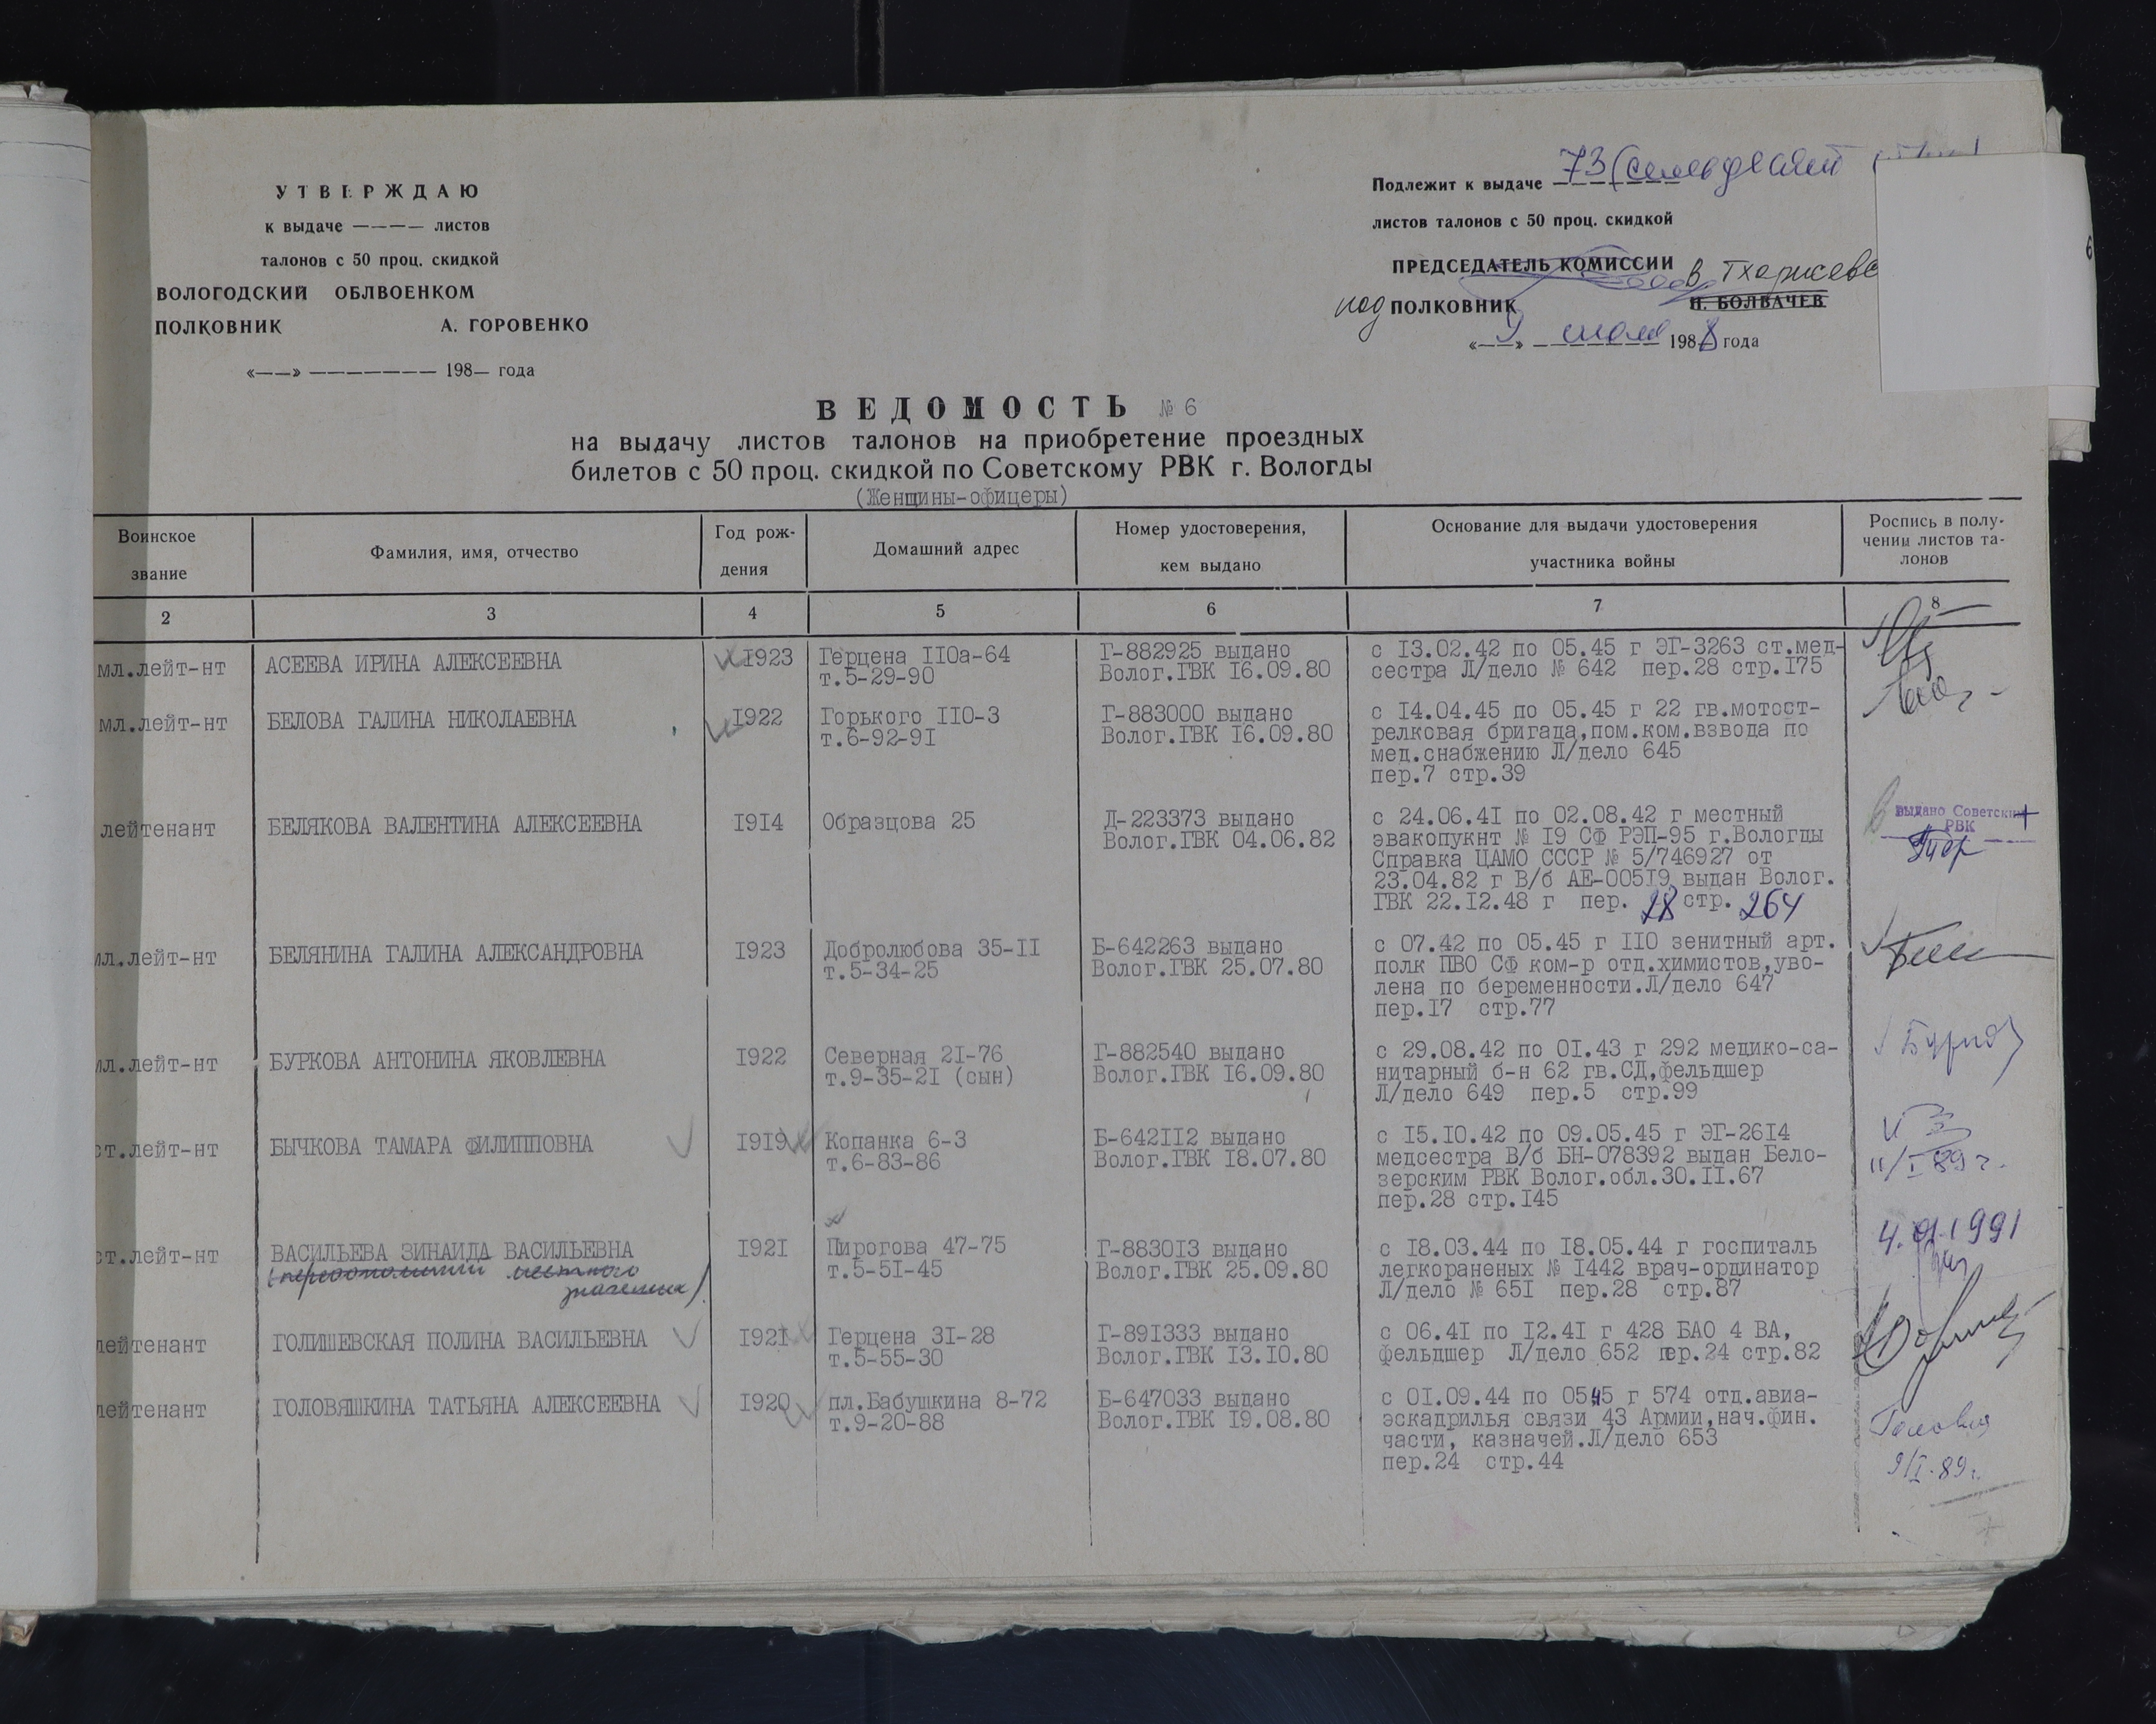 УТВЕРЖДАЮ
к выдаче ———— листов
талонов с 50 проц. скидкой
ВОЛОГОДСКИЙ ОБЛВОЕНКОМ
ПОЛКОВНИК А. ГОРОВЕНКО
«——» ——————— 198— года
Подлежит к выдаче 73 (семьдесят
листов талонов с 50 проц. скидкой
ПРЕДСЕДАТЕЛЬ КОМИССИИ
подПОЛКОВНИК Н. БОЛВАЧЕВ
«9» июля 1988 года
6
ВЕДОМОСТЬ № 6
на выдачу листов талонов на приобретение проездных
билетов с 50 проц. скидкой по Советскому РВК г. Вологды
(Женщины-офицеры)
Воинское звание
Фамилия, имя, отчество
Год рож-
дения
Домашний адрес
Номер удостоверения,
кем выдано
Основание для выдачи удостоверения
участника войны
Роспись в полу-
чении листов та-
лонов
2 3 4 5 6 7 8
мл.лейт-нт АСЕЕВА ИРИНА АЛЕКСЕЕВНА 1923 Герцена 110а-64 Г-882925 выдано с 13.02.42 по 05.45 г ЭГ-3263 ст.мед-
т.5-29-90 Волог.ГВК 16.09.80 сестра Л/дело № 642 пер.28 стр.175
мл.лейт-нт БЕЛОВА ГАЛИНА НИКОЛАЕВНА 1922 Горького 110-3 Г-883000 выдано с 14.04.45 по 05.45 г 22 гв.мотост-
т.6-92-91 Волог.ГВК 16.09.80 релковая бригада,пом.ком.взвода по
мед.снабжению Л/дело 645
пер.7 стр.39
лейтенант БЕЛЯКОВА ВАЛЕНТИНА АЛЕКСЕЕВНА 1914 Образцова 25 Д-223373 выдано с 24.06.41 по 02.08.42 г местный выдано Советским
Волог.ГВК 04.06.82 эвакопукнт № 19 СФ РЭП-95 г.Вологды РВК
Справка ЦАМО СССР № 5/746927 от
23.04.82 г В/б АЕ-00519 выдан Волог.
ГВК 22.12.48 г пер. 28 стр. 264
мл.лейт-нт БЕЛЯНИНА ГАЛИНА АЛЕКСАНДРОВНА 1923 Добролюбова 35-11 Б-642263 выдано с 07.42 по 05.45 г 110 зенитный арт.
т.5-34-25 Волог.ГВК 25.07.80 полк ПВО СФ ком-р отд.химистов,уво-
лена по беременности.Л/дело 647
пер.17 стр.77
мл.лейт-нт БУРКОВА АНТОНИНА ЯКОВЛЕВНА 1922 Северная 21-76 Г-882540 выдано с 29.08.42 по 01.43 г 292 медико-са-
т.9-35-21 (сын) Волог.ГВК 16.09.80 нитарный б-н 62 гв.СД,фельдшер
Л/дело 649 пер.5 стр.99
ст.лейт-нт БЫЧКОВА ТАМАРА ФИЛИППОВНА 1919 Копанка 6-3 Б-642112 выдано с 15.10.42 по 09.05.45 г ЭГ-2614
т.6-83-86 Волог.ГВК 18.07.80 медсестра В/б БН-078392 выдан Бело- 11/I 89 г.
зерским РВК Волог.обл.30.11.67
пер.28 стр.145
ст.лейт-нт ВАСИЛЬЕВА ЗИНАИДА ВАСИЛЬЕВНА 1921 Пирогова 47-75 Г-883013 выдано с 18.03.44 по 18.05.44 г госпиталь 4.01.1991
местного т.5-51-45 Волог.ГВК 25.09.80 легкораненых № 1442 врач-ординатор
значения) Л/дело № 651 пер.28 стр.87
лейтенант ГОЛИШЕВСКАЯ ПОЛИНА ВАСИЛЬЕВНА 1921 Герцена 31-28 Г-891333 выдано с 06.41 по 12.41 г 428 БАО 4 ВА,
т.5-55-30 Волог.ГВК 13.10.80 фельдшер Л/дело 652 пер.24 стр.82
лейтенант ГОЛОВЯШКИНА ТАТЬЯНА АЛЕКСЕЕВНА 1920 пл.Бабушкина 8-72 Б-647033 выдано с 01.09.44 по 05.45 г 574 отд.авиа-
т.9-20-88 Волог.ГВК 19.08.80 эскадрилья связи 43 Армии,нач.фин.
части, казначей.Л/дело 653
пер.24 стр.44 9/I-89г.